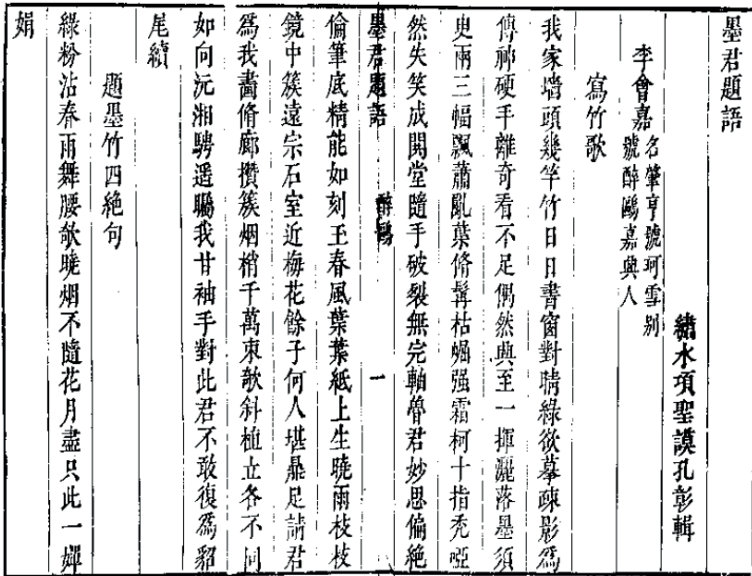 墨君題語
繡水項聖謨孔彰輯
李會嘉 名肇亨號珂雪别
號醉鷗嘉興人
寫竹歌
我家墻頭幾竿竹日日書窗對晴綠欲摹疎影爲
傳神硬手離奇看不足偶然興至一揮灑落墨須
臾兩三幅飄蕭亂葉脩髯枯崛强霜柯十指秃啞
然失笑成閧堂隨手破裂無完軸魯君妙思偏絶
墨君題語 醉鷗 一
倫筆底精能如刻玉春風葉葉紙上生曉雨枝枝
鏡中簇遠宗石室近梅花餘子何人堪鼎足請君
爲我畵脩廊攢簇烟梢千萬束欹斜植立各不同
如向沅湘騁遥矚我甘袖手對此君不敢復爲貂
尾續
題墨竹四絶句
綠粉沾春雨舞腰欹曉烟不隨花月盡只此一嬋
娟